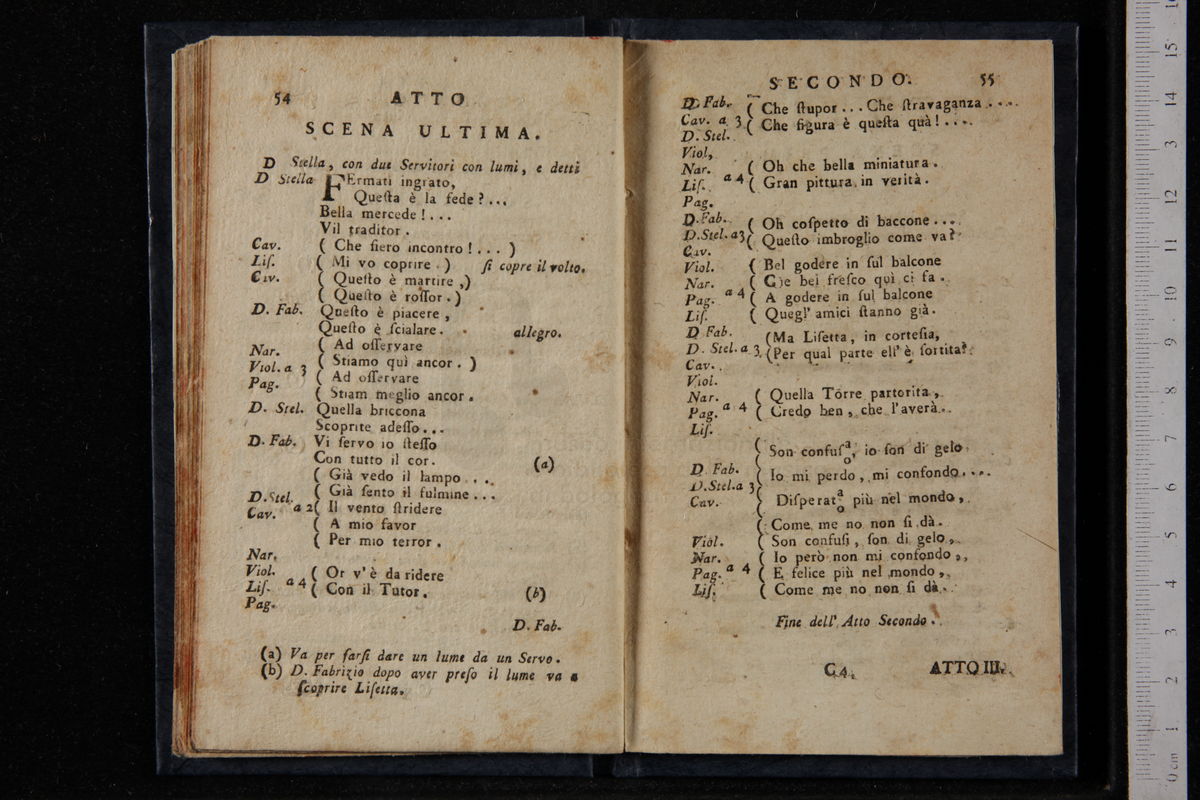 54 ATTO
SCENA ULTIMA.
D Stella, con due Servitori con lumi, e detti
D Stella FErmati ingrato,
Queſta è la fede?...
Bella mercede!...
Vil traditor.
Cav. ( Che fiero incontro!...)
Liſ. ( Mi vo coprire.) ſi copre il volto.
Cav. ( Queſto è martire,)
( Queſto è roſſor.)
D. Fab. Queſto è piacere,
Queſto è ſcialare. allegro.
Nar. ( Ad oſſervare
Viol. a 3 ( Stiamo quì ancor.)
Pag. ( Ad oſſervare
( Stiam meglio ancor.
D. Stel. Quella briccona
Scoprite adeſſo...
D. Fab. Vi ſervo io ſteſſo
Con tutto il cor. (a)
( Già vedo il lampo...
D. Stel. ( Già ſento il fulmine...
Cav. a 2 ( Il vento ſtridere
( A mio favor
( Per mio terror.
Nar.
Viol. ( Or v'è da ridere
Liſ. a 4 ( Con il Tutor. (b)
Pag.
D. Fab.
(a) Va per farſi dare un lume da un Servo.
(b) D. Fabrizio dopo aver preſo il lume va a
ſcoprire Liſetta.
SECONDO. 55
D. Fab. ( Che ſtupor... Che ſtravaganza....
Cav. a 3 ( Che figura è queſta quà!....
D. Stel.
Viol,
Nar. ( Oh che bella miniatura.
Liſ. a 4 ( Gran pittura in verità.
Pag.
D. Fab. ( Oh coſpetto di baccone...
D. Stel. a 3 ( Queſto imbroglio come va?
Cav.
Viol. ( Bel godere in ſul balcone
Nar. ( Che bel freſco quì ci fa.
Pag. a 4 ( A godere in ſul balcone
Liſ. ( Quegl' amici ſtanno già.
D Fab. ( Ma Liſetta, in corteſia,
D. Stel. a 3 ( Per qual parte ell' è ſortita?
Cav.
Viol.
Nar. ( Quella Torre partorita,
Pag. a 4 ( Credo ben, che l'averà.
Liſ.
( Son confuſa/o, io ſon di gelo
D. Fab. ( Io mi perdo, mi confondo....
D. Stel. a 3
Cav. ( Diſperata/o più nel mondo,
( Come me no non ſi dà.
Viol. ( Son confuſi, ſon di gelo,
Nar. ( Io però non mi confondo,
Pag. a 4 ( E felice più nel mondo,
Liſ. ( Come me no non ſi dà.
Fine dell' Atto Secondo.
C 4 ATTO III.
15
14
13
12
11
10
9
8
7
6
5
4
3
2
1
0 cm